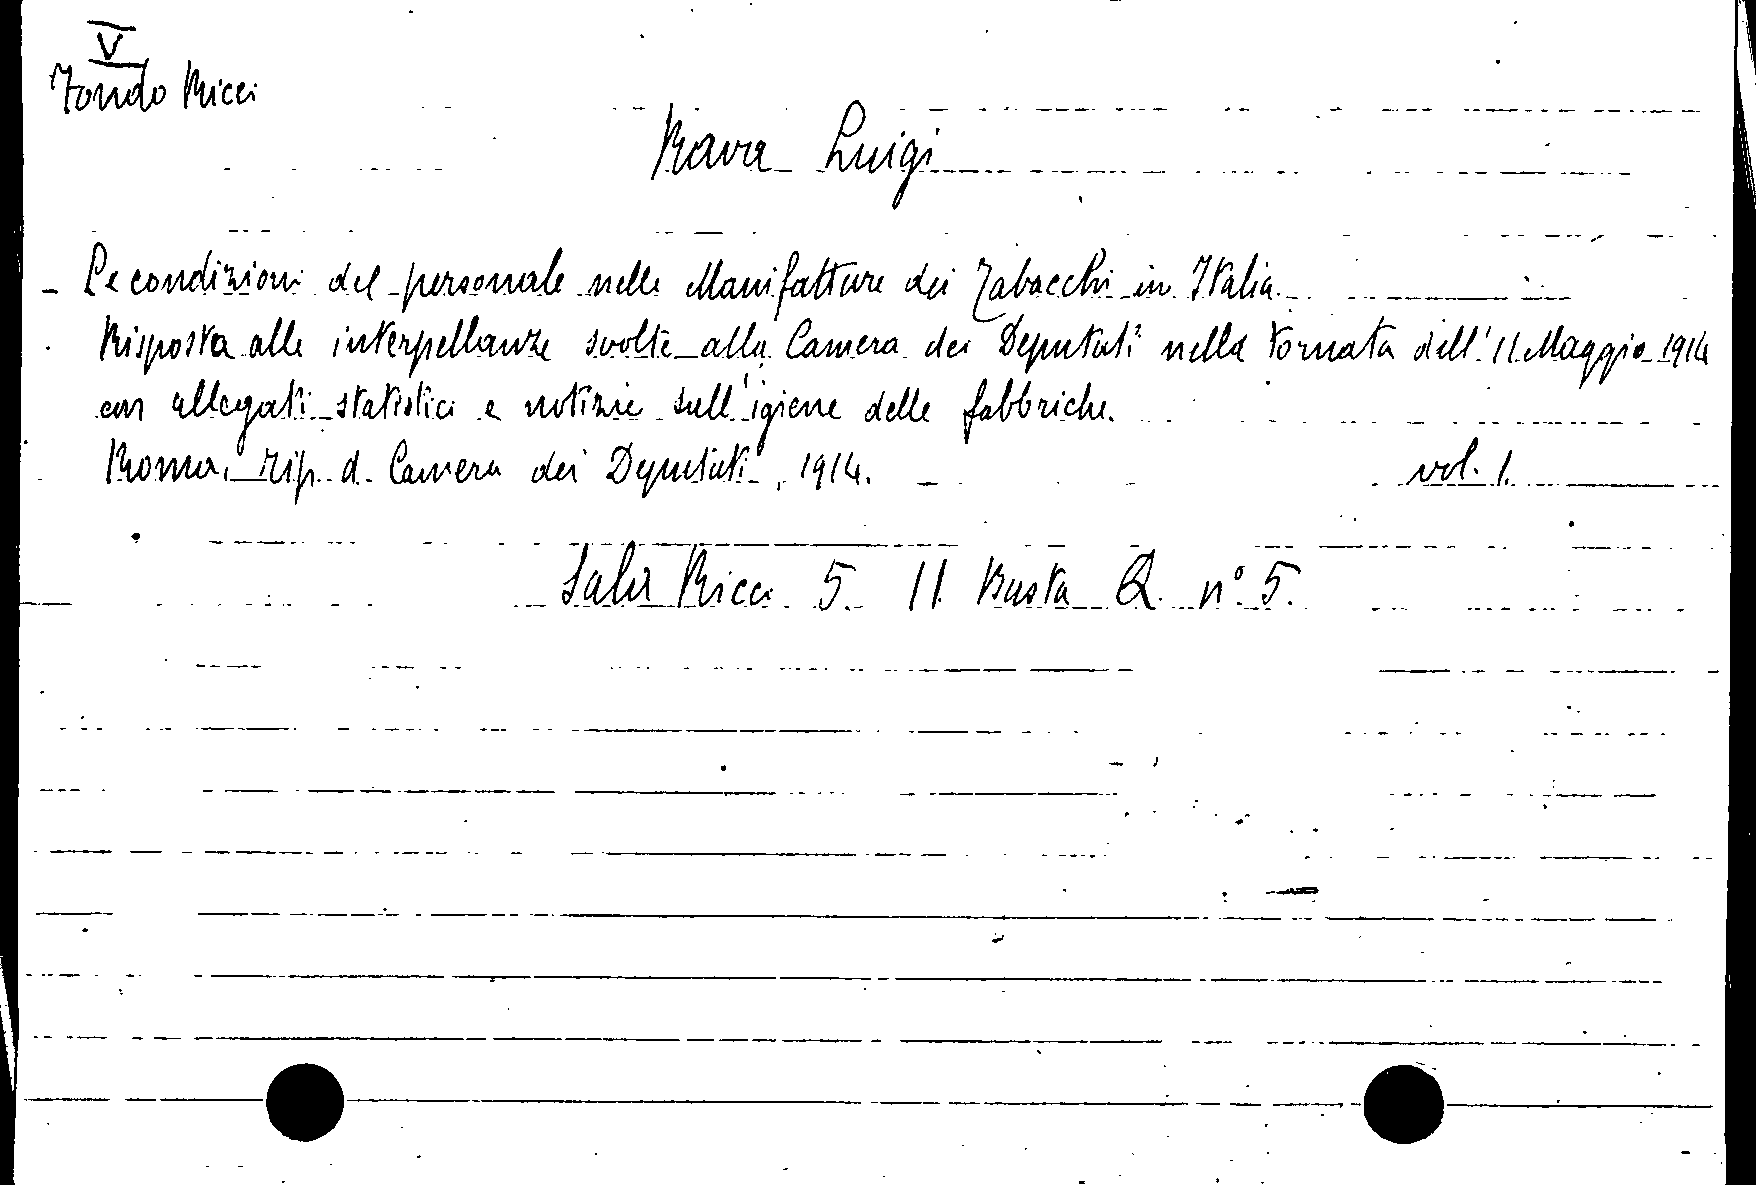 V
Fondo Ricci
Rava Luigi
- Le condizioni del personale nelle Manifatture dei Tabacchi in Italia.
Risposta alle interpellanze svolte alla Camera dei Deputati nella tornata dell'11 Maggio 1914
con allegati statistici e notizie sull'igiene delle fabbriche.
Roma, Tip. d. Camera dei Deputati, 1914. vol. 1.
Sala Ricci 5. 11. Busta Q. n° 5.